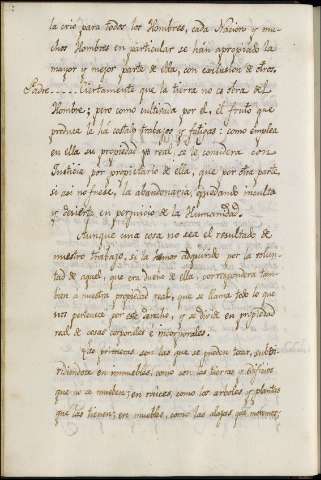 la crió para todos los Hombres, cada Nación y mu-
chos Hombres en particular se hán apropiado la
mayor y mejor parte de ella, con exclusion de otros.
Padre..... Ciertamente que la tierra no es obra del
Hombre; pero como cultivada por el, el fruto que
produce le há costado trabajos y fatigas: como emplea
en ella su propiedad real, se le considera con
Justicia por propietario de ella, que por otra parte,
si asi no fuese, la abandonaria, quedando inculta
y desierta en perjuicio de la Humanidad.
Aunque una cosa no sea el resultado de
nuestro trabajo, si la hemos adquirido por la volun-
tad de aquel, que era dueño de ella, corresponderá tam-
bien a nuestra propiedad real, que se llama todo lo que
nos pertenece por este derecho, y se divide en propiedad
real de cosas corporales é incorporales.
Las primeras son las que se pueden tocar, subdi-
vidiendose en inmuebles, como son las tierras y edificios
que no se mueben; en raices, como los arboles y plantas
que las tienen; en muebles, como las alajas que movemos;